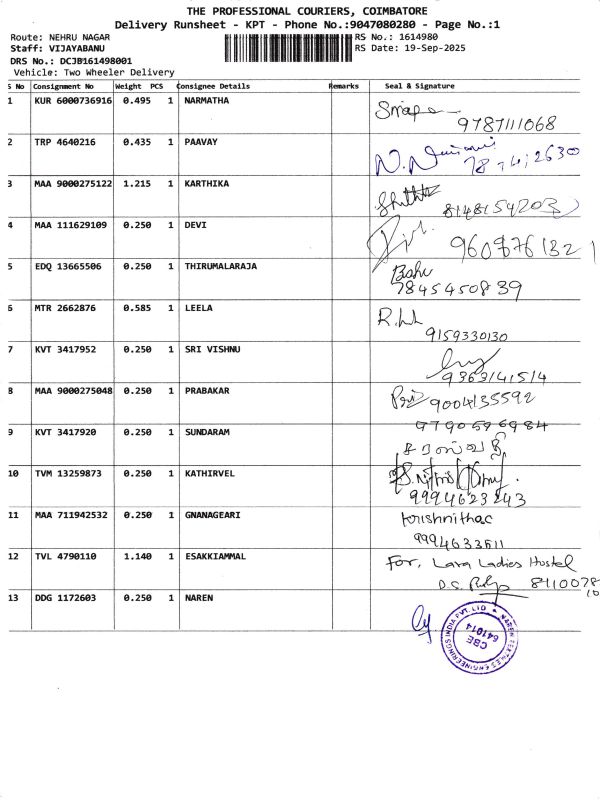 THE PROFESSIONAL COURIERS, COIMBATORE
Delivery Runsheet - KPT - Phone No.:9047080280 - Page No.:1
Route: NEHRU NAGAR RS No.: 1614980
Staff: VIJAYABANU RS Date: 19-Sep-2025
DRS No.: DCJB161498001
Vehicle: Two Wheeler Delivery
S No Consignment No Weight PCS Consignee Details Remarks Seal & Signature
1 KUR 6000736916 0.495 1 NARMATHA
9787111068
2 TRP 4640216 0.435 1 PAAVAY
3 MAA 9000275122 1.215 1 KARTHIKA
8148154203
4 MAA 111629109 0.250 1 DEVI
9608761321
5 EDQ 13665506 0.250 1 THIRUMALARAJA
7845450839
6 MTR 2662876 0.585 1 LEELA
9159330130
7 KVT 3417952 0.250 1 SRI VISHNU
9363141514
8 MAA 9000275048 0.250 1 PRABAKAR
9004135592
9 KVT 3417920 0.250 1 SUNDARAM
9790596984
சரஸ்வதி
10 TVM 13259873 0.250 1 KATHIRVEL
9994623243
11 MAA 711942532 0.250 1 GNANAGEARI
9994633511
12 TVL 4790110 1.140 1 ESAKKIAMMAL For, Lara Ladies Hostel
8110078
10
13 DDG 1172603 0.250 1 NAREN
CBE
641014